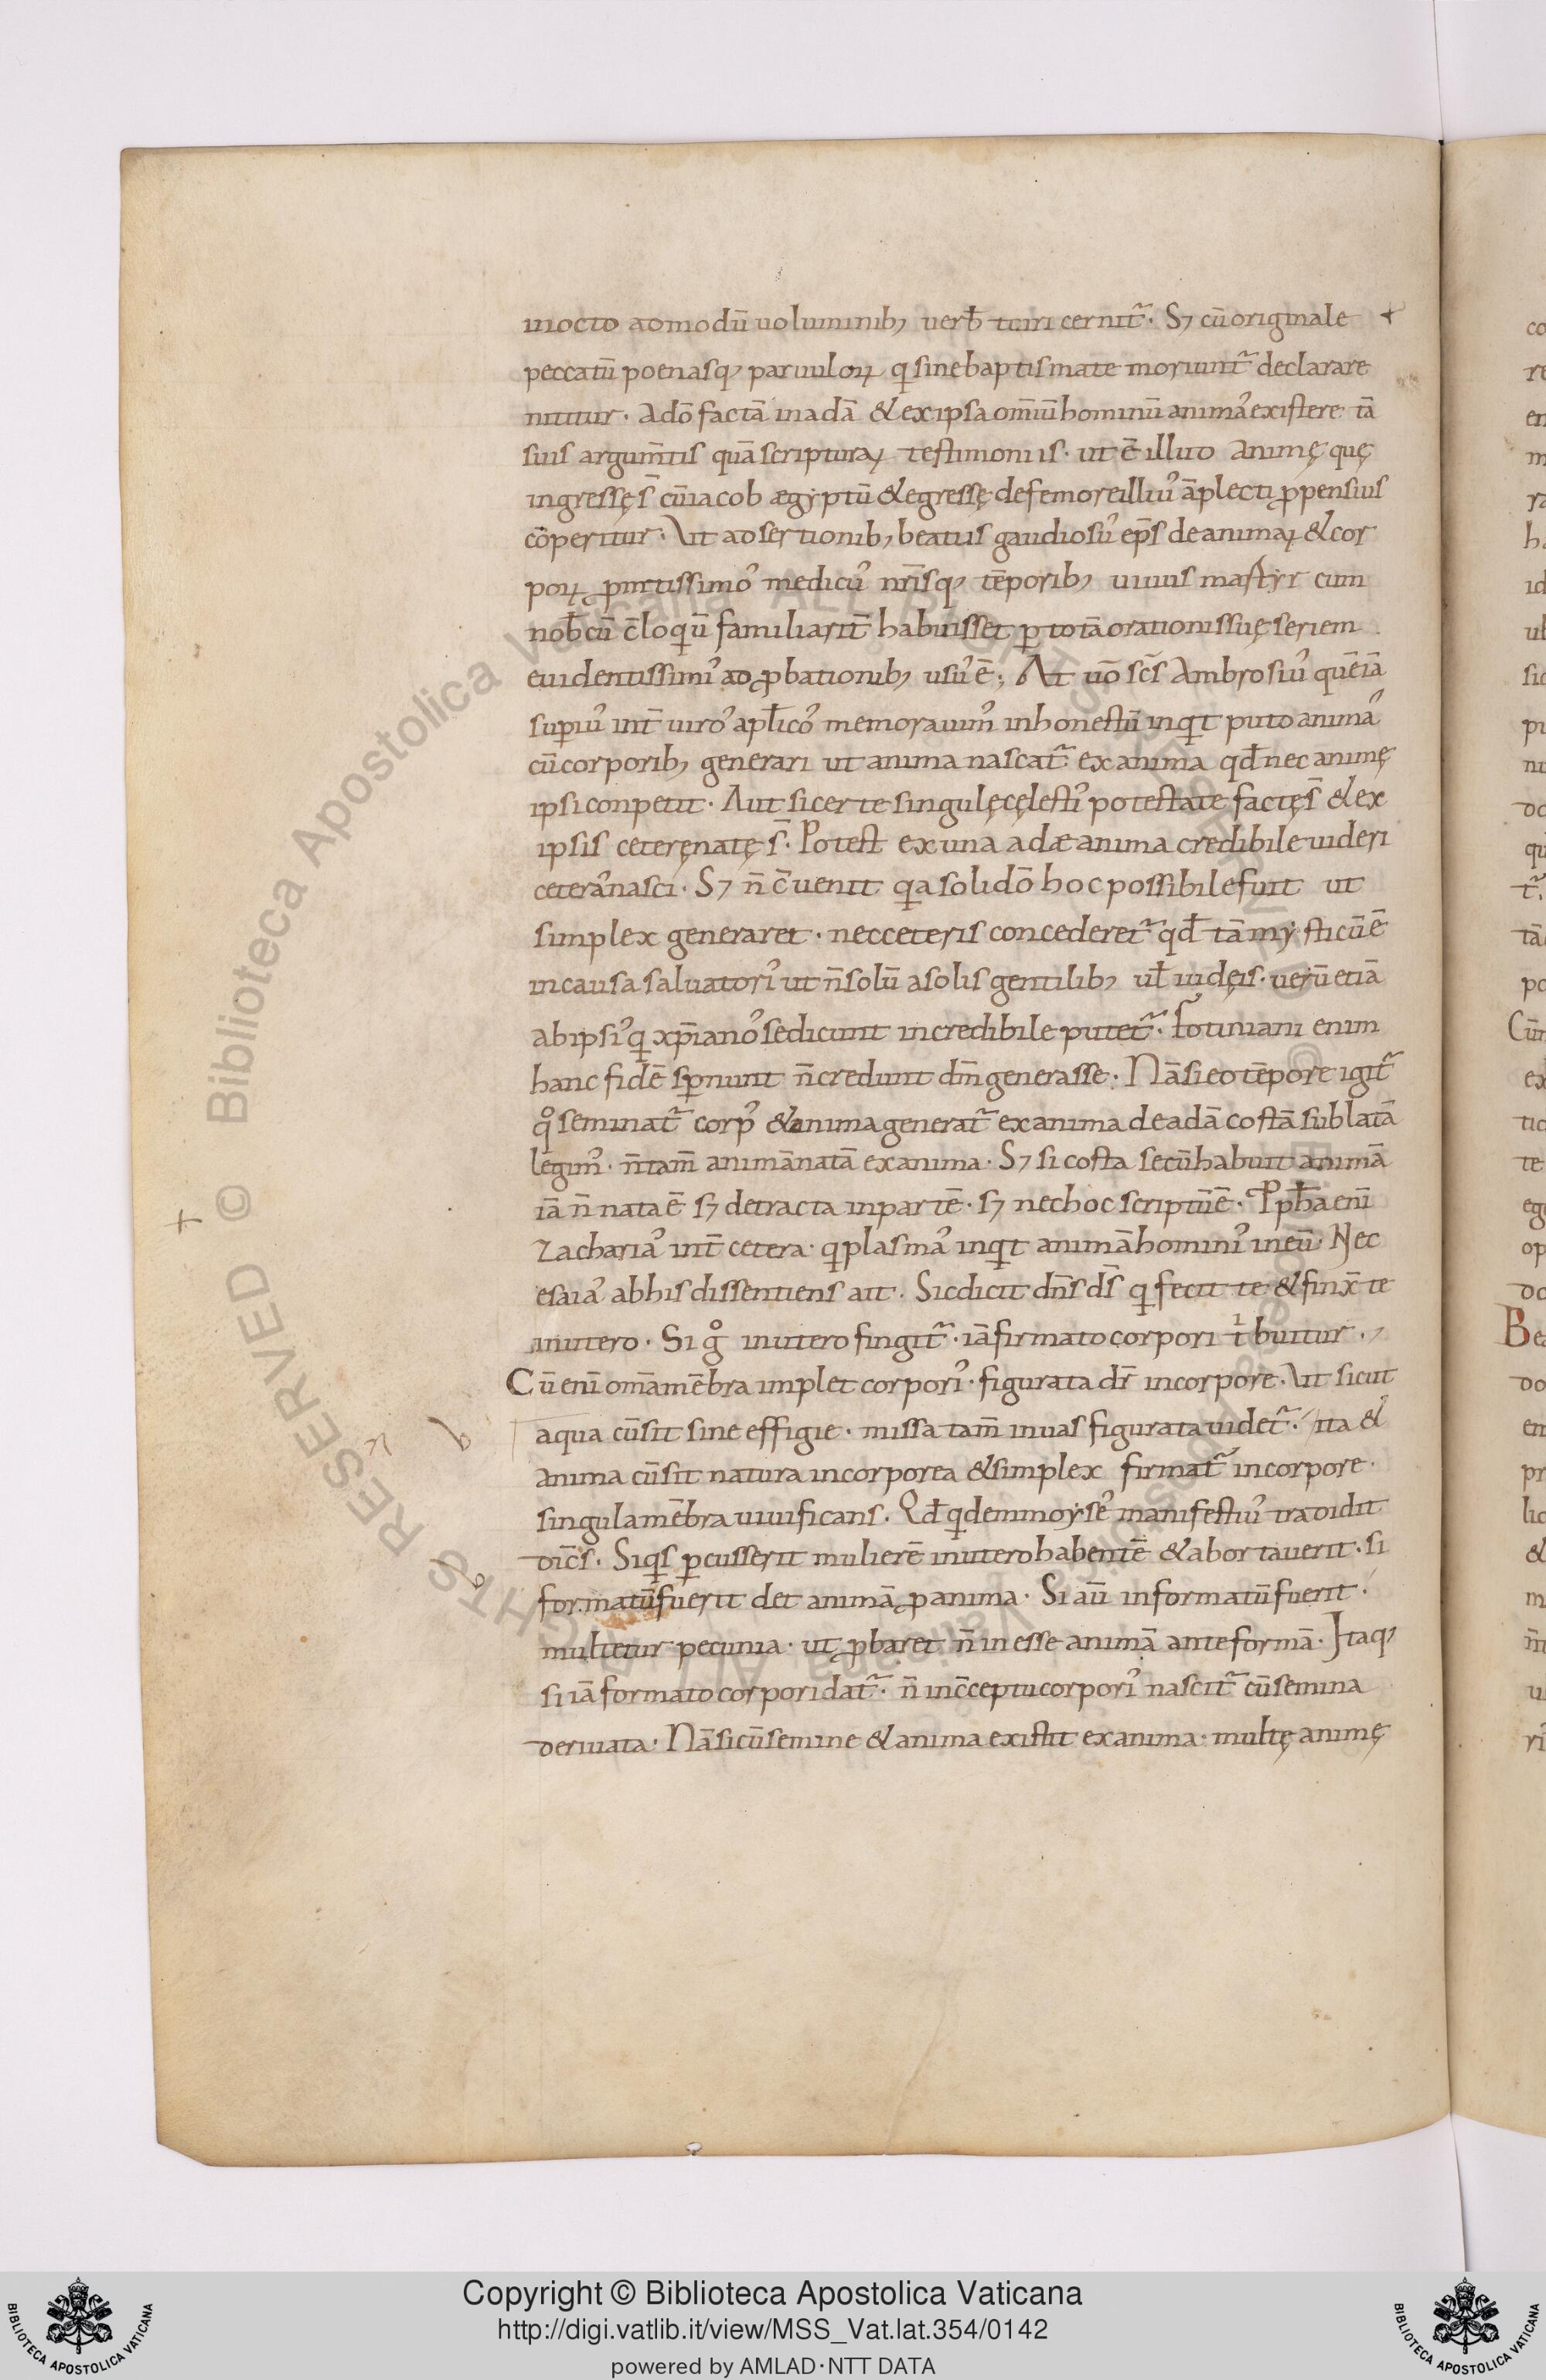 inocto admodū voluminib; verb̄ tueri cernit̃. S; cū originale
peccatū poenasq; parvuloꝝ q sine baptismate moriunt̃ declarare
nititur. Adō factā in adā & ex ipsa omīū hominū animaʼ existere tā
suis argum̄tis quā scripturaꝝ testimoniis. ut ē illud animę quę
ingressę s̄ cū iacob ægyptū & egressę de femore illiuʼ āplecti ꝓpensius
cōperitur. At adsertionib; beatus gaudiosuʼ ep̄s de animaꝝ & cor
poꝝ peritissimoʼ medicuʼ nr̄isq; tēporib; vivus martyr cum
nob̄cū c̄loqiū familiarit̄ habuisset ꝑ totā orationis suę seriem
evidentissimiʼ adꝓbationib; usuʼ ē; At vō sc̄s Ambrosiuʼ quē iā
suꝑiuʼ int̄ viroʼ apl̄icoʼ memoravimʼ inhonestū inqt puto animaʼ
cū corporib; generari ut anima nascat̃ ex anima qd̄ nec animę
ipsi conpetit. Aut si certe singulę cęlestiʼ potestate factę s̄ & ex
ipsis ceterę natę s̄. Potest ex una adæ anima credibile videri
ceteraʼ nasci. S; n̄ c̄venit qa soli dō hoc possibile fuit ut
simplex generaret. nec ceteris concederet̃ qd̄ tā mysticū ē
in causa salvatoriʼ ut n̄ solū a solis gentilib; vl̄ iudęis. verū etiā
ab ipsiʼ q xp̄ianoʼ se dicunt incredibile putet̃. Fotiniani enim
hanc fidē sꝑnunt n̄ credunt dm̄ generasse. Nā si eo tēpore igit̃
qͦ seminat̃ corpʼ & anima generat̃ ex anima de adā costā sublatā
legimʼ. n̄ tam̄ animā natā ex anima. S; si costa secū habuit animā
iā n̄ nata ē s; detracta in partē. s; nec hoc scriptū ē. Ppħa enī
Zachariaʼ int̄ cetera. q plasmaʼ inqt animā hominiʼ in eū. Nec
esaiaʼ ab his dissentiens ait. Sic dicit dn̄s ds̄ q fecit te & finx̄ te
in utero. Si gͦ in utero fingit̃. iā firmato corpori tⁱbuitur.
Cū enī omā mēbra implet corporiʼ. figurata dr̄ in corpore. At sicut
aqua cū sit sine effigie. missa tam̄ in vas figurata videt̃. ita &
anima cū sit natura incorporea & simplex firmat̃ in corpore.
singula mēbra vivificans. Qd̄ qdem moyseʼ manifestiuʼ tradidit
dic̄s. Siqs ꝑcusserit mulierē in utero habentē & abortaverit. si
formatū fuerit det animā ꝓ anima. Si aū informatū fuerit.
multetur pecunia. ut ꝓbaret n̄ inesse animā ante formā. Itaq;
si iā formato corpori dat̃. n̄ in c̄ceptu corporiʼ nascit̃ cū semina
derivata. Nā si cū semine & anima existit ex anima. multę animę
Copyright © Biblioteca Apostolica Vaticana
http://digi.vatlib.it/view/MSS_Vat.lat.354/0142
powered by AMLAD·NTT DATA